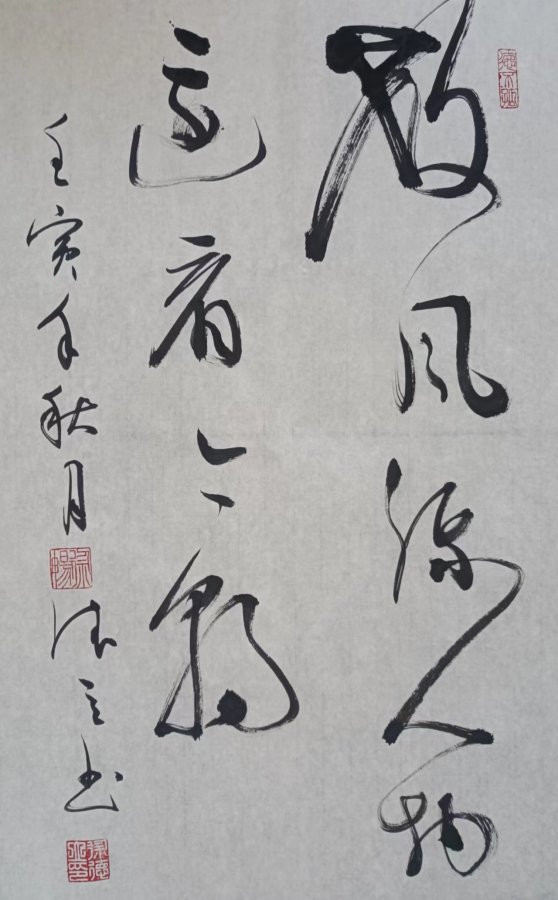 数风流人物
还看今朝
壬寅年秋月
德立书